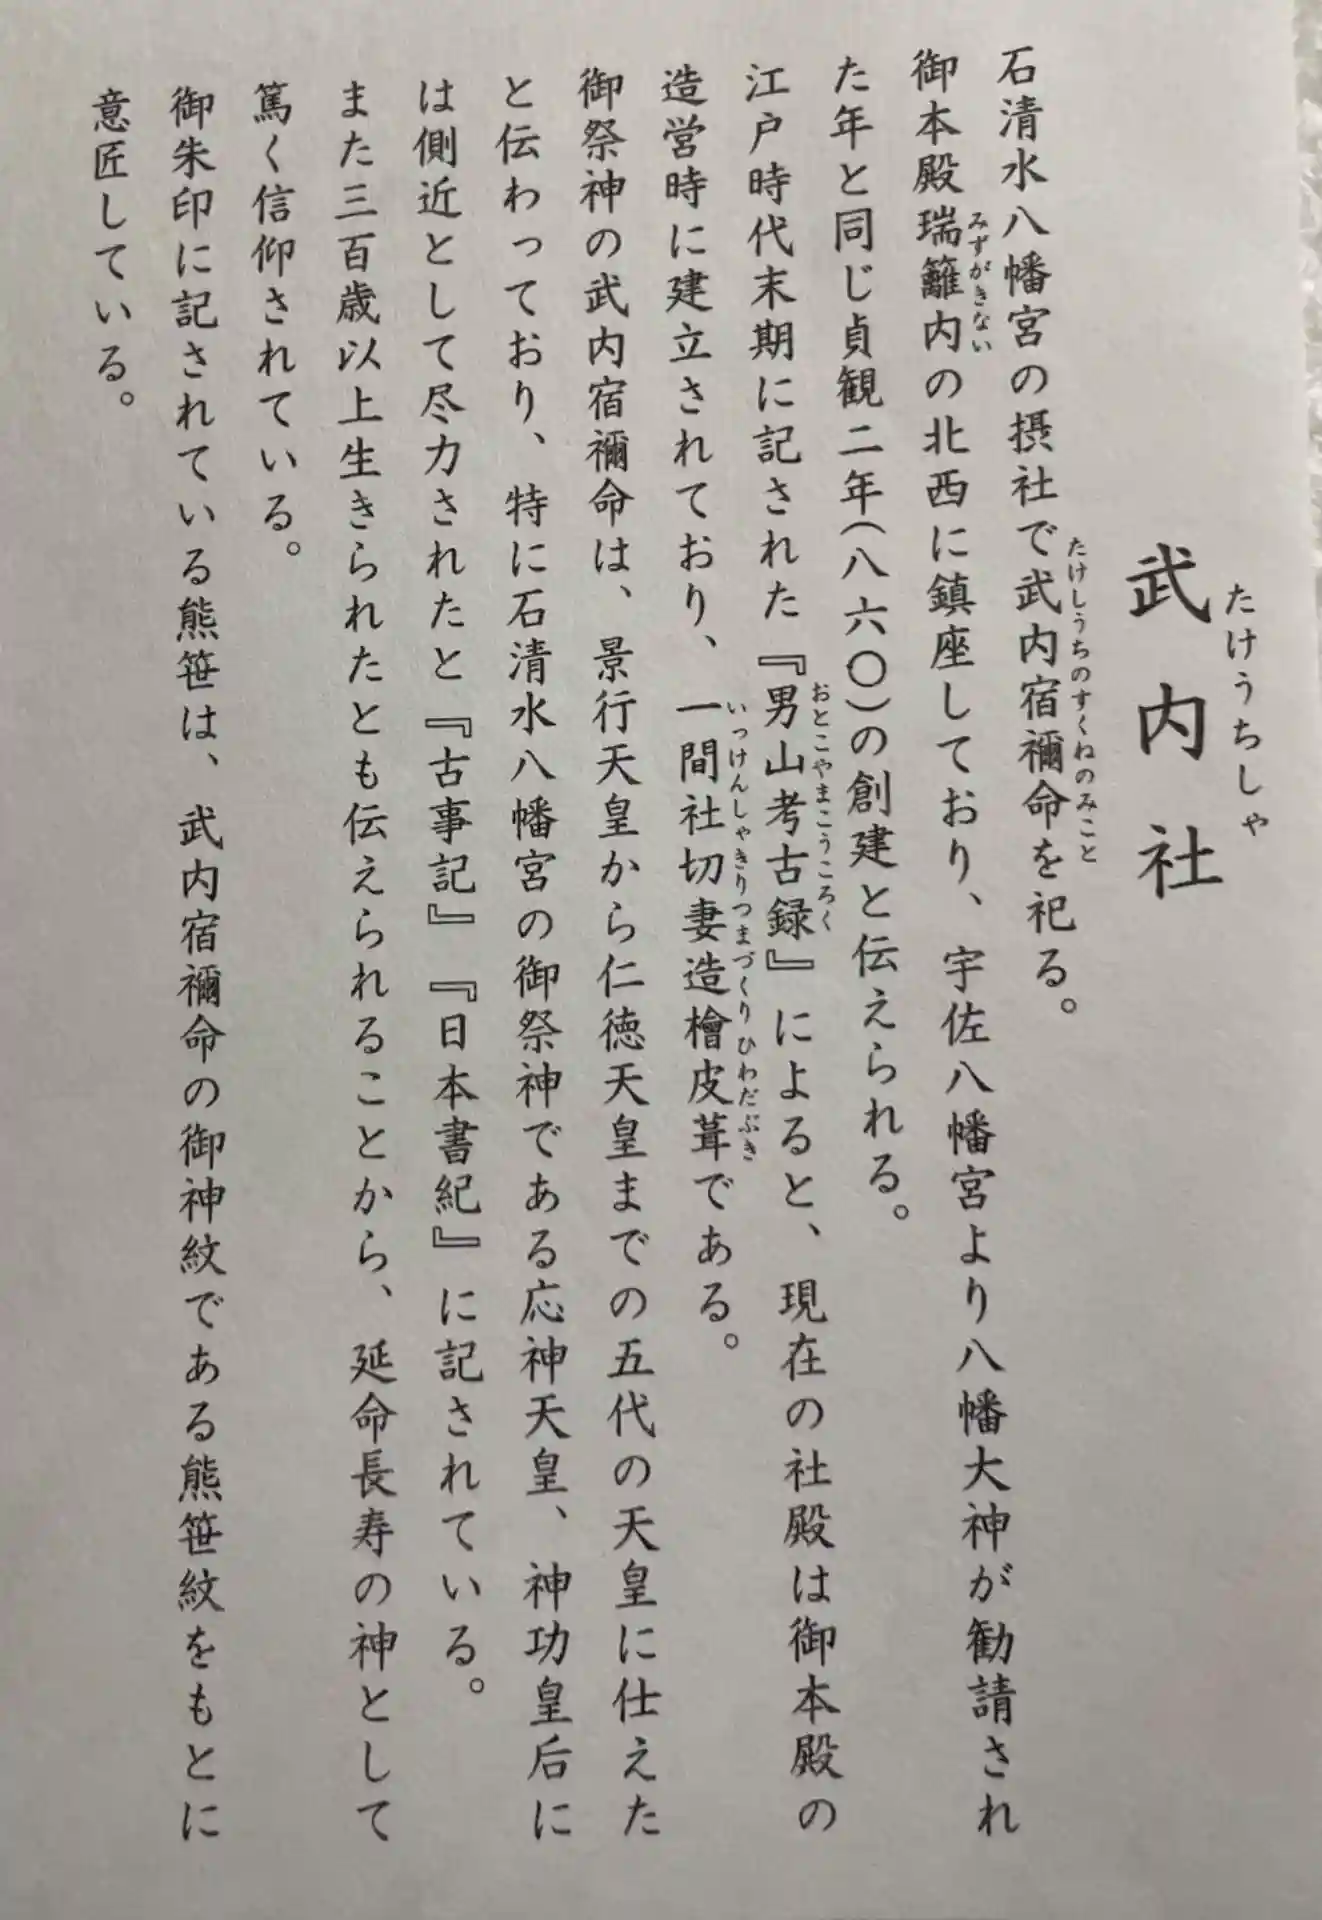 たけうちしゃ
武内社
石清水八幡宮の摂社で武内宿禰命を祀る。
たけしうちのすくねのみこと
御本殿瑞籬内の北西に鎮座しており、宇佐八幡宮より八幡大神が勧請され
みずがきない
た年と同じ貞観二年(八六〇)の創建と伝えられる。
江戸時代末期に記された『男山考古録』によると、現在の社殿は御本殿の
おとこやまこうころく
造営時に建立されており、一間社切妻造檜皮葺である。
いっけんしゃきりつまづくりひわだぶき
御祭神の武内宿禰命は、景行天皇から仁徳天皇までの五代の天皇に仕えた
と伝わっており、特に石清水八幡宮の御祭神である応神天皇、神功皇后に
は側近として尽力されたと『古事記』『日本書紀』に記されている。
また三百歳以上生きられたとも伝えられることから、延命長寿の神として
篤く信仰されている。
御朱印に記されている熊笹は、武内宿禰命の御神紋である熊笹紋をもとに
意匠している。